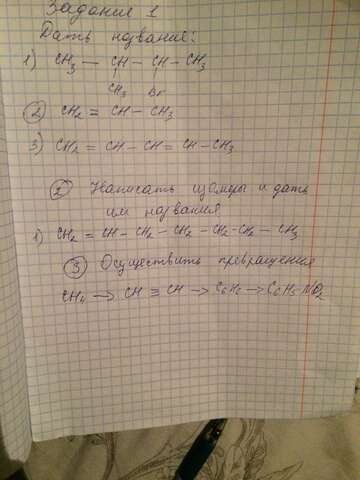 Задание 1
Дать название:
1) CH3 — CH — CH — CH3
CH3 Br
2) CH2 = CH — CH3
3) CH2 = CH — CH = CH — CH3
2 Написать изомеры и дать
им названия
1) CH2 = CH — CH2 — CH2 — CH2 — CH2 — CH3
3 Осуществить превращения
CH4 → CH ≡ CH → C6H6 → C6H5NO2